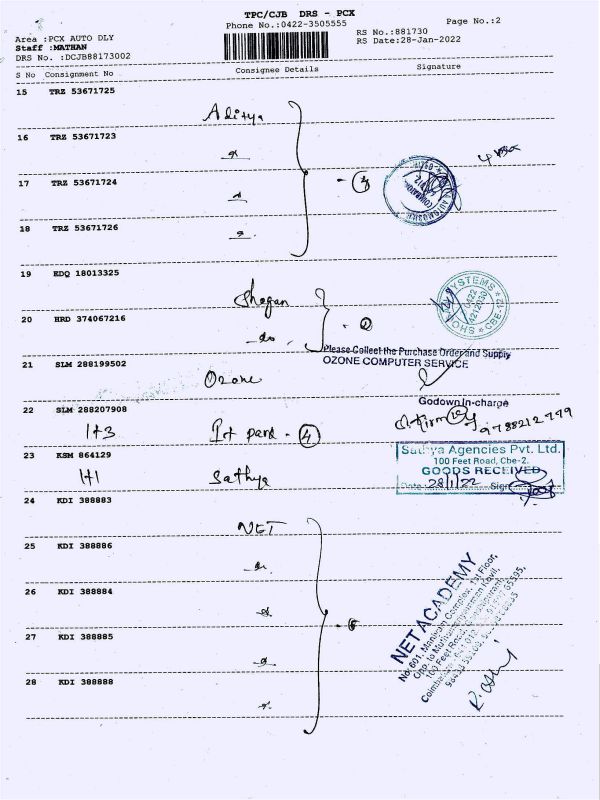 TPC/CJB DRS - PCX
Phone No.:0422-3505555
Page No.:2
Area :PCX AUTO DLY
RS No.:881730
Staff :MATHAN
RS Date:28-Jan-2022
DRS No. :DCJB88173002
S No Consignment No Consignee Details Signature
15 TRZ 53671725
Aditya
16 TRZ 53671723
17 TRZ 53671724
- 4
18 TRZ 53671726
19 EDQ 18013325
SYSTEMS
20 HRD 374067216
- do .
Please Collect the Purchase Order and Supply
OZONE COMPUTER SERVICE
21 SLM 288199502
Ozone
Godown In-charge
22 SLM 288207908
1+3
- 4
9788212999
23 KSM 864129
1+1 Sathya
Sathya Agencies Pvt. Ltd.
100 Feet Road, Cbe-2.
GOODS RECEIVED
Date: 28/1/22 Sign
24 KDI 388883
NET
25 KDI 388886
26 KDI 388884
27 KDI 388885
28 KDI 388888
NET ACADEMY
No: 601, Complex, 1st Floor,
100 Feet Road,